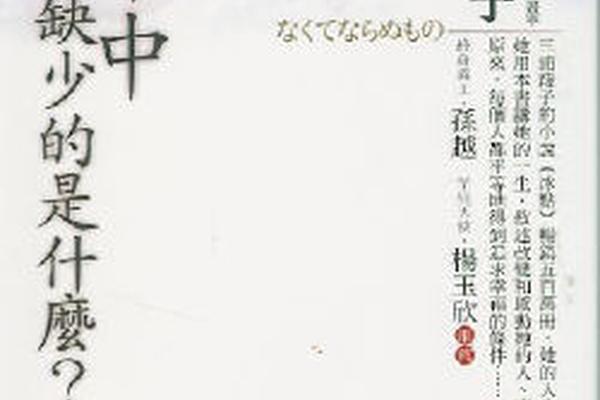 三浦綾子的小說《冰點》暢銷五百萬冊，她的人
她用本書講她的一生，敘述改變和感動她的人、
原來，每個人都平等地得到追求幸福的條件……
子
終身義工・孫越
楊玉欣
なくてならぬもの
中
缺少的是什麼？